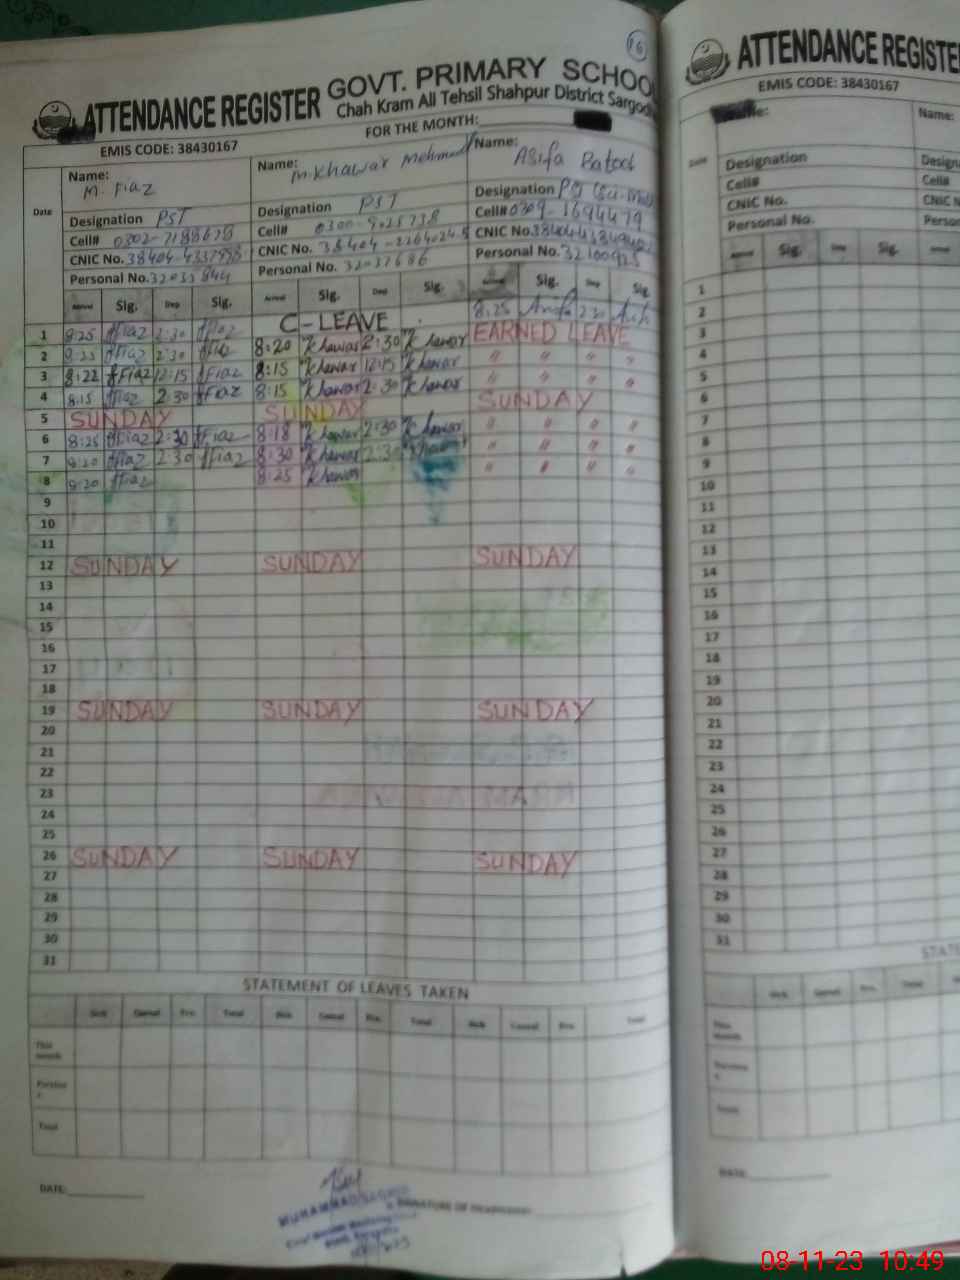 16
ATTENDANCE REGISTER GOVT. PRIMARY SCHOOL
Chah Kram Ali Tehsil Shahpur District Sargodh
FOR THE MONTH:
EMIS CODE: 38430167
Date
Name: M. Fiaz
Designation PST
Cell# 0302-7188678
CNIC No. 38404-
Personal No. 32033844
Name: M. Khawar Mehmood
Designation PST
Cell# 0300-9025738
CNIC No. 38404-
Personal No. 32037686
Name: Asifa Batool
Designation
Cell# 0309-1694479
CNIC No.
Personal No. 32100925
Arrival Sig. Dep Sig. Arrival Sig. Dep Sig. Arrival Sig. Dep Sig.
1 8:25 ffiaz 2:30 ffiaz C-LEAVE 8:25 Asifa 2:30
2 8:25 ffiaz 2:30 ffiaz 8:20 Khawar 2:30 Khawar EARNED LEAVE
3 8:22 ffiaz 12:15 ffiaz 8:15 Khawar 12:15 Khawar " " " "
4 8:15 ffiaz 2:30 ffiaz 8:15 Khawar 2:30 Khawar " " " "
5 SUNDAY SUNDAY SUNDAY
6 8:25 ffiaz 2:30 ffiaz 8:18 Khawar 2:30 Khawar " " " "
7 8:20 ffiaz 2:30 ffiaz 8:30 Khawar 2:30 Khawar " " " "
8 8:20 ffiaz 8:25 Khawar " " " "
9
10
11
12 SUNDAY SUNDAY SUNDAY
13
14
15
16
17
18
19 SUNDAY SUNDAY SUNDAY
20
21
22
23
24
25
26 SUNDAY SUNDAY SUNDAY
27
28
29
30
31
STATEMENT OF LEAVES TAKEN
Sick Casual Total Sick Casual Total Sick Casual Total
This month
Total
DATE:
MUHAMMAD
SIGNATURE OF
ATTENDANCE REGISTER
EMIS CODE: 38430167
Date
Name:
Designation
Cell#
CNIC No.
Personal No.
Name:
Design
Cell#
CNIC N
Perso
Arrival Sig. Dep Sig.
1
2
3
4
5
6
7
8
9
10
11
12
13
14
15
16
17
18
19
20
21
22
23
24
25
26
27
28
29
30
31
STATE
Sick Casual Total
This month
Total
DATE:
08-11-23 10:49